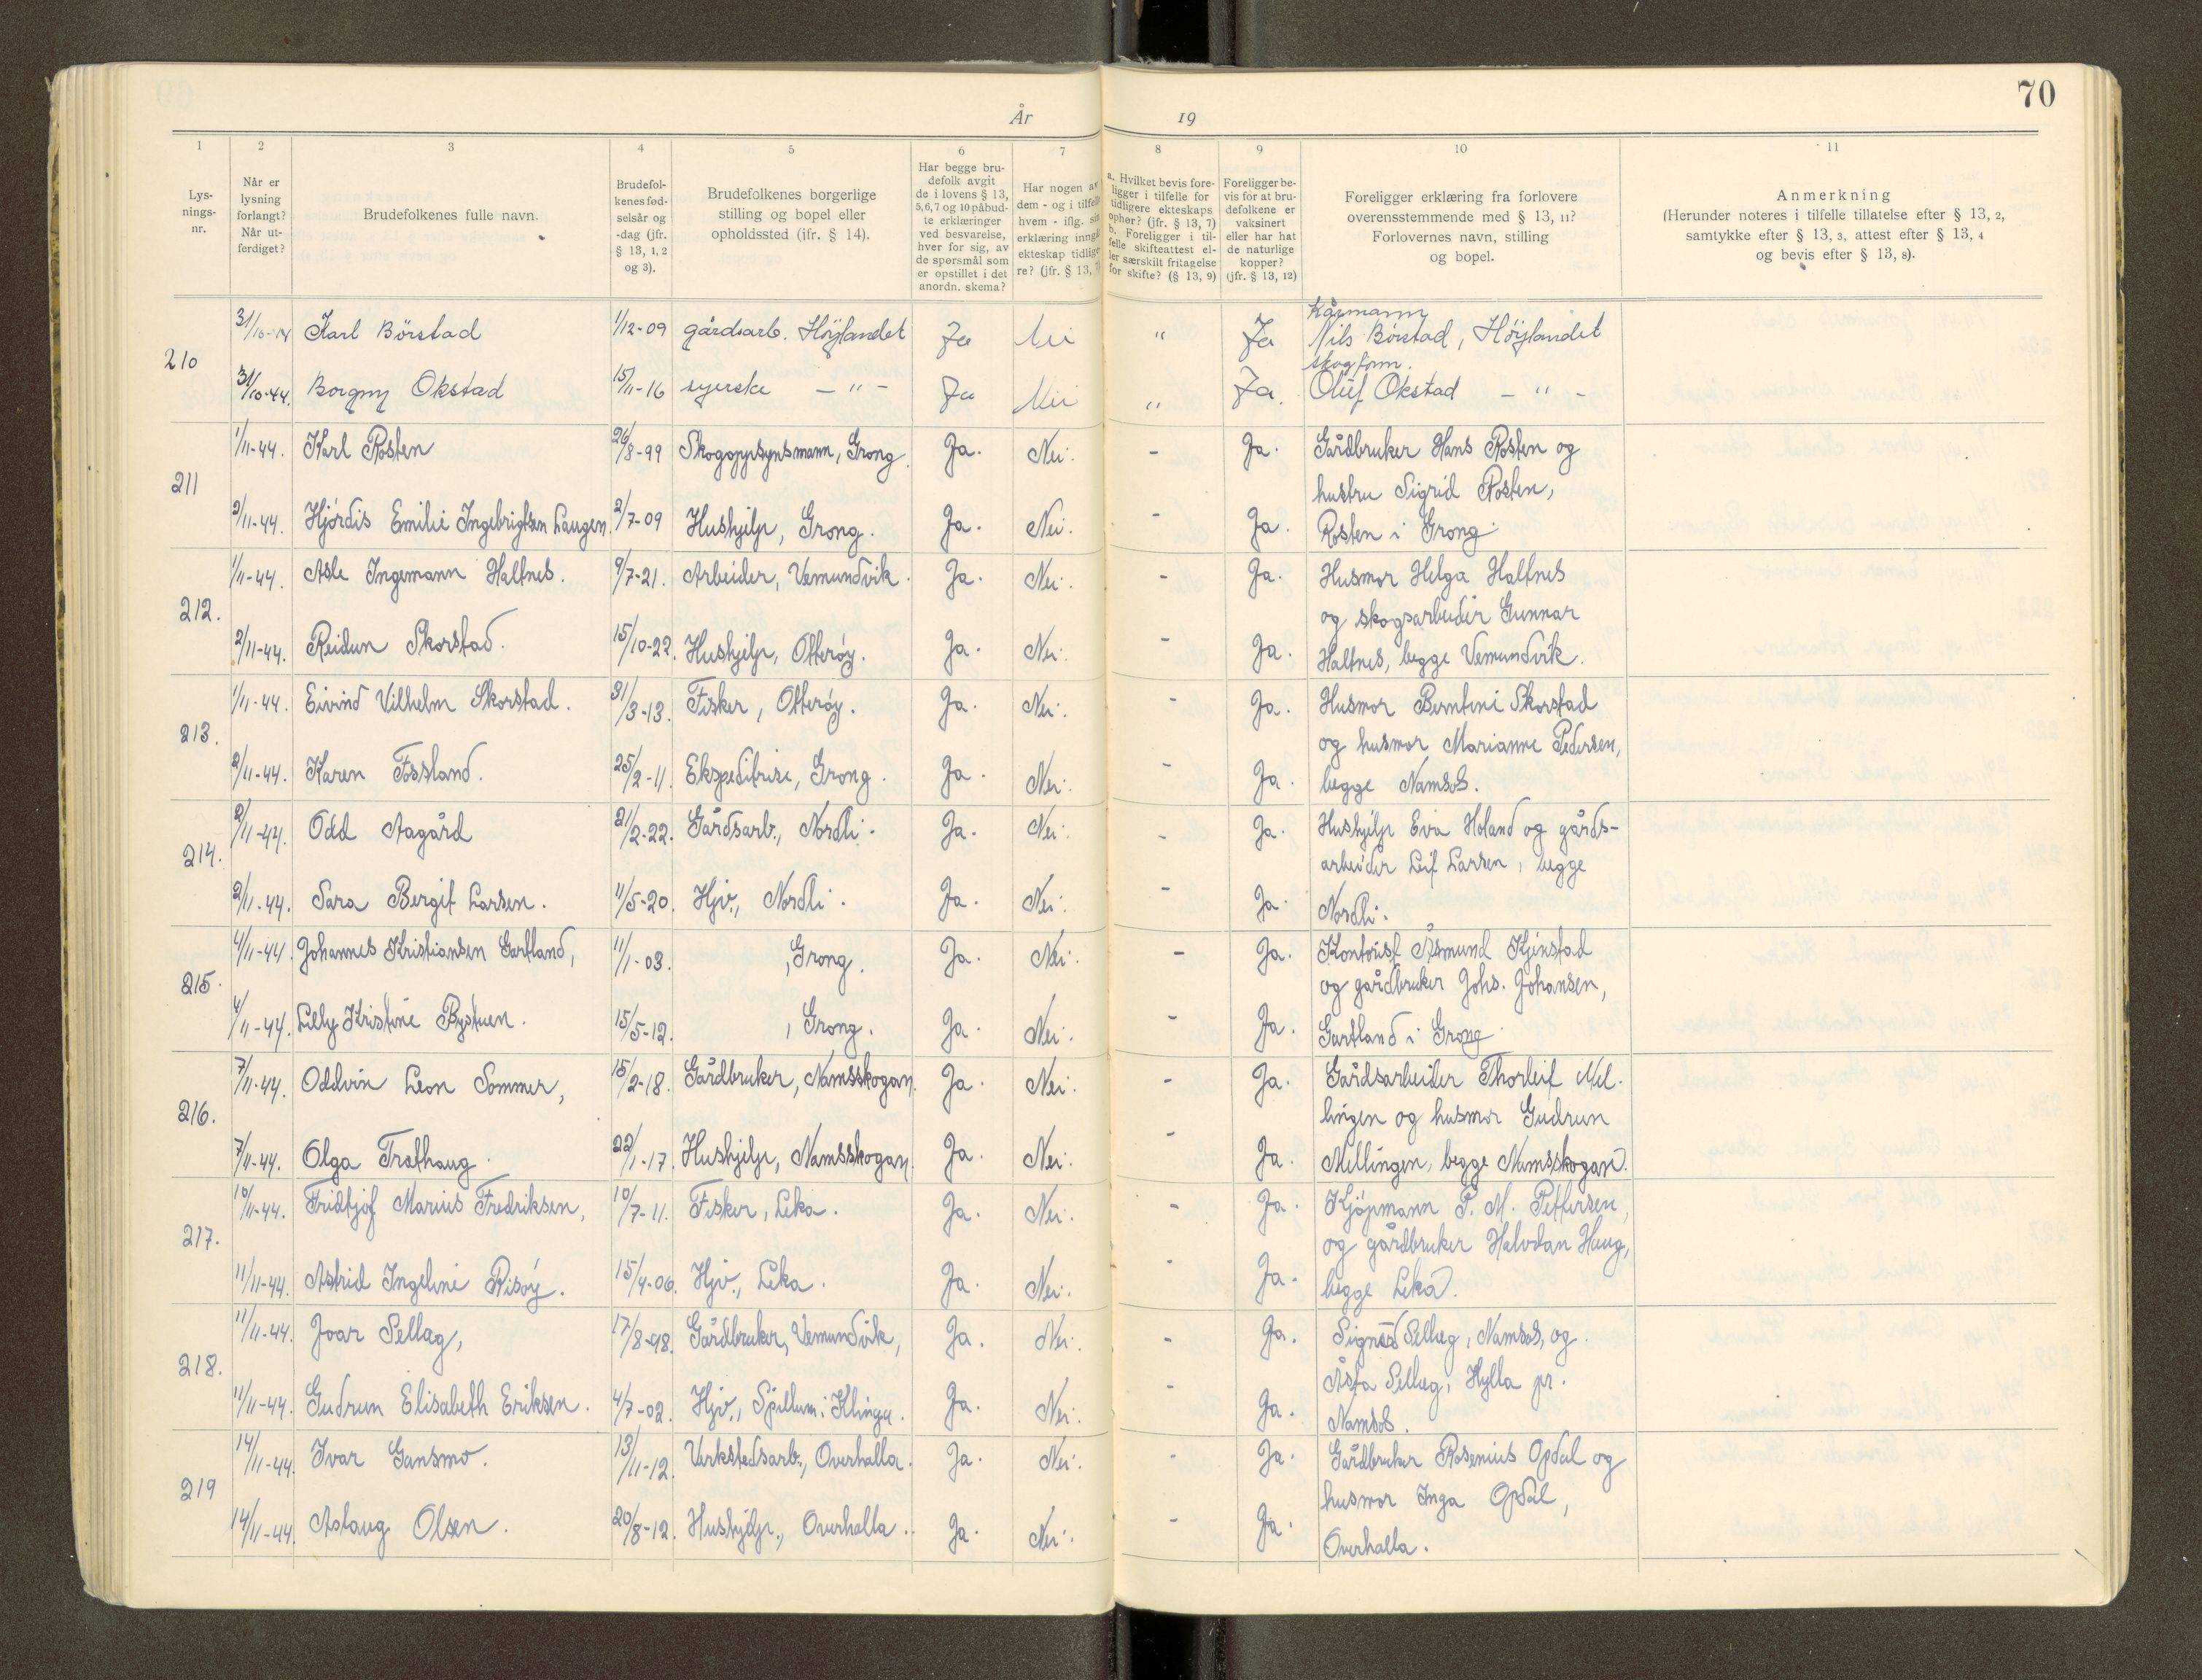 70
År 19
1 2 3 4 5 6 7 8 9 10 11
Lys-
nings-
nr.
Når er
lysning
forlangt?
Når ut-
ferdiget?
Brudefolkenes fulle navn.
Brudefol-
kenes fød-
selsår og
-dag (jfr.
§ 13, 1, 2
og 3).
Brudefolkenes borgerlige
stilling og bopel eller
opholdssted (ifr. § 14).
Har begge bru-
defolk avgit
de i lovens § 13,
5,6,7 og 10 påbud-
te erklæringer
ved besvarelse,
hver for sig, av
de spørsmål som
er opstillet i det
anordn. skema?
Har nogen av
dem - og i tilfelle
hvem - iflg. sin
erklæring inngå
ekteskap tidlige-
re? (jfr. § 13, 7)
a. Hvilket bevis fore-
ligger i tilfelle for
tidligere ekteskaps
ophør? (jfr. § 13, 7)
b. Foreligger i til-
felle skifteattest el-
ler særskilt fritagelse
for skifte? (§ 13, 9)
Foreligger be-
vis for at bru-
defolkene er
vaksinert
eller har hat
de naturlige
kopper?
(jfr. § 13, 12)
Foreligger erklæring fra forlovere
overensstemmende med § 13, 11?
Forlovernes navn, stilling
og bopel.
Anmerkning
(Herunder noteres i tilfelle tillatelse efter § 13, 2,
samtykke efter § 13, 3, attest efter § 13, 4
og bevis efter § 13, 8).
210
31/10-44 Karl Börstad 1/12-09 gårdsarb. Höylandet Ja Nei " Ja
Kårmann
Nils Börstad, Höylandet
31/10-44. Borgny Okstad 15/11-16 syerske - " - Ja Nei " Ja.
skogform.
Oluf Okstad - " -
211
1/11-44. Karl Rosten 26/8-99 Skogoppsynsmann, Grong. Ja. Nei. - Ja. Gårdbruker Hans Rosten og
hustru Sigrid Rosten,
2/11-44. Hjördis Emilie Ingebrigtsen Laugen. 2/7-09 Hushjelp, Grong. Ja. Nei. - Ja. Rosten i Grong.
212.
1/11-44. Asle Ingemann Haltnes. 9/7-21. Arbeider, Vemundvik. Ja. Nei. - Ja. Husmor Helga Haltnes
og skogsarbeider Gunnar
2/11-44. Reidun Skorstad. 15/10-22. Hushjelp, Otterøy. Ja. Nei. - Ja. Haltnes, begge Vemundvik.
213.
1/11-44. Eivind Vilhelm Skorstad. 31/3-13. Fisker, Otterøy. Ja. Nei. - Ja. Husmor Berntine Skorstad
og husmor Marianne Pedersen,
2/11-44. Karen Fossland. 25/2-11. Ekspeditrise, Grong. Ja. Nei. - Ja. begge Namsos.
214.
2/11-44. Odd Aagård 21/2-22. Gårdsarb., Nordli. Ja. Nei. - Ja. Hushjelp Eva Holand og gårds-
arbeider Leif Larsen, begge
2/11-44. Sara Bergit Larsen. 11/5-20. Hjv., Nordli. Ja. Nei. - Ja. Nordli.
215.
4/11-44. Johannes Kristiansen Gartland, 11/1-03. , Grong. Ja. Nei. - Ja. Kontorist Åsmund Kjinstad
og gårdbruker Johs. Johansen,
4/11-44. Lilly Kristine Bystuen. 15/5-12. , Grong. Ja. Nei. - Ja. Gartland i Grong.
216.
7/11-44. Oddvin Leon Sommer, 15/2-18. Gårdbruker, Namsskogan. Ja. Nei. - Ja. Gårdsarbeider Thorleif Mel-
lingen og husmor Gudrun
7/11-44. Olga Trathaug. 22/1-17. Hushjelp, Namsskogan. Ja. Nei. - Ja. Mellingen, begge Namsskogan.
217.
10/11-44. Fridtjof Marius Fredriksen, 10/7-11. Fisker, Leka. Ja. Nei. - Ja. Kjøpmann P. M. Pettersen,
og gårdbruker Halvdan Haug,
11/11-44. Astrid Ingeline Risøy. 15/4-06. Hjv., Leka. Ja. Nei. - Ja. begge Leka.
218.
11/11-44. Joar Sellæg, 17/8-98. Gårdbruker, Vemundvik, Ja. Nei. - Ja. Sellæg, Namsos, og
Åsta Sellæg, Hylla pr.
11/11-44. Gudrun Elisabeth Eriksen. 4/7-02. Hjv., Spillum i Klinga. Ja. Nei. - Ja. Namsos.
219
14/11-44. Ivar Gansmo. 13/11-12. Verkstedsarb., Overhalla. Ja. Nei. - Ja. Gårdbruker Rosenius Opdal og
husmor Inga Opdal,
14/11-44. Aslaug Olsen. 20/8-12. Hushjelp., Overhalla. Ja. Nei. - Ja. Overhalla.